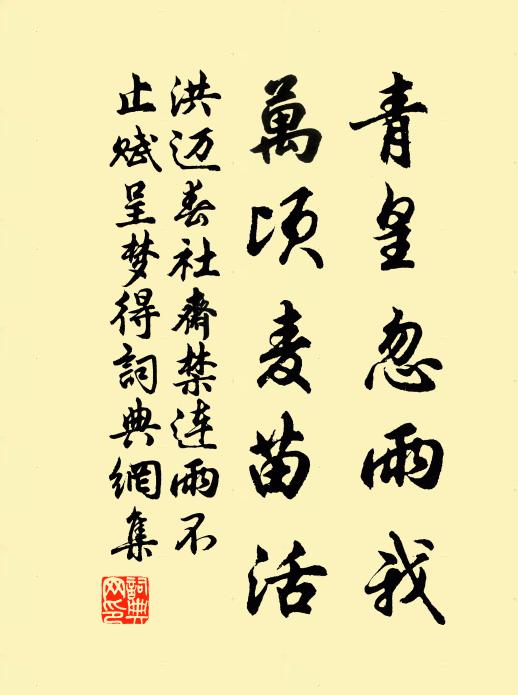 青皇忽雨我
萬頃麦苗活
洪迈春社齋禁连雨不
止赋呈梦得詞典網集
詞典网印